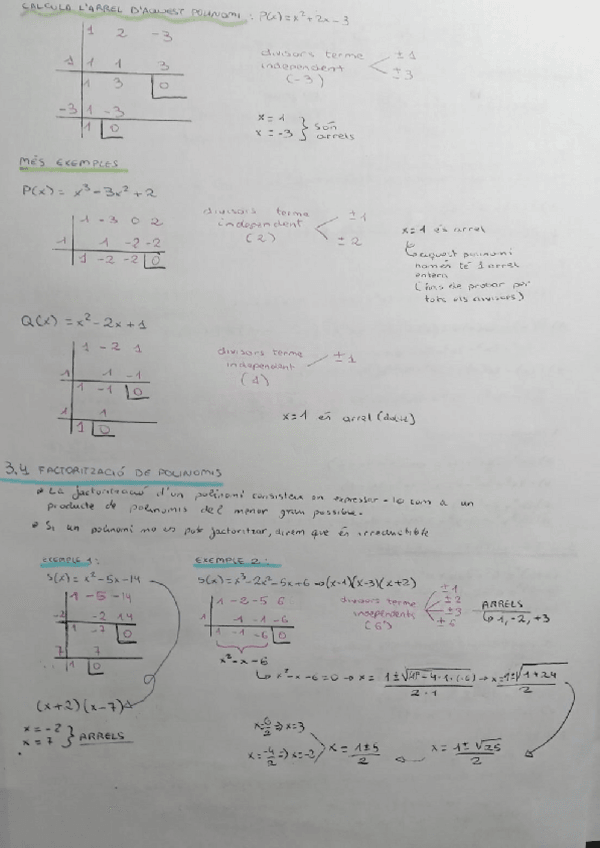 CALCULA L'ARREL D'AQUEST POLINOMI: P(x)=x²+2x-3
1 2 -3
1 1 3
1 3 0
-3 1 -3
1 0
divisors terme independent (-3) ±1 ±3
x=1
x=-3
són arrels
MÉS EXEMPLES
P(x) = x³-3x²+2
1 -3 0 2
1 1 -2 -2
1 -2 -2 0
divisors terme independent (2) ±1 ±2
x=1 és arrel
aquest polinomi
només té 1 arrel
entera
de probar per
tots els divisors)
Q(x) = x²-2x+1
1 -2 1
1 1 -1
1 -1 0
1 1
1 0
divisors terme independent (1) ±1
x=1 és arrel (doble)
3.4 FACTORITZACIÓ DE POLINOMIS
La factorització d'un polinomi consisteix en expressar-lo com a un
producte de polinomis del menor grau possible.
Si un polinomi no es pot factoritzar, direm que és irreductible
EXEMPLE 1:
S(x)= x²-5x-14
1 -5 -14
-2 -2 14
1 -7 0
7 7
1 0
(x+2)(x-7)
x=-2
x=7
ARRELS
EXEMPLE 2:
S(x)=x³-2x²-5x+6 → (x-1)(x-3)(x+2)
1 -2 -5 6
1 1 -1 -6
1 -1 -6 0
divisors terme independents (6) ±1 ±2 ±3 ±6
ARRELS
1, -2, +3
x²-x-6
x²-x-6=0 → x = 1±√1²-4·1·(-6) / 2·1 → x = 1±√1+24 / 2
x = 1±√25 / 2
x = 1±5 / 2
x=6/2 ⇒ x=3
x=-4/2 ⇒ x=-2